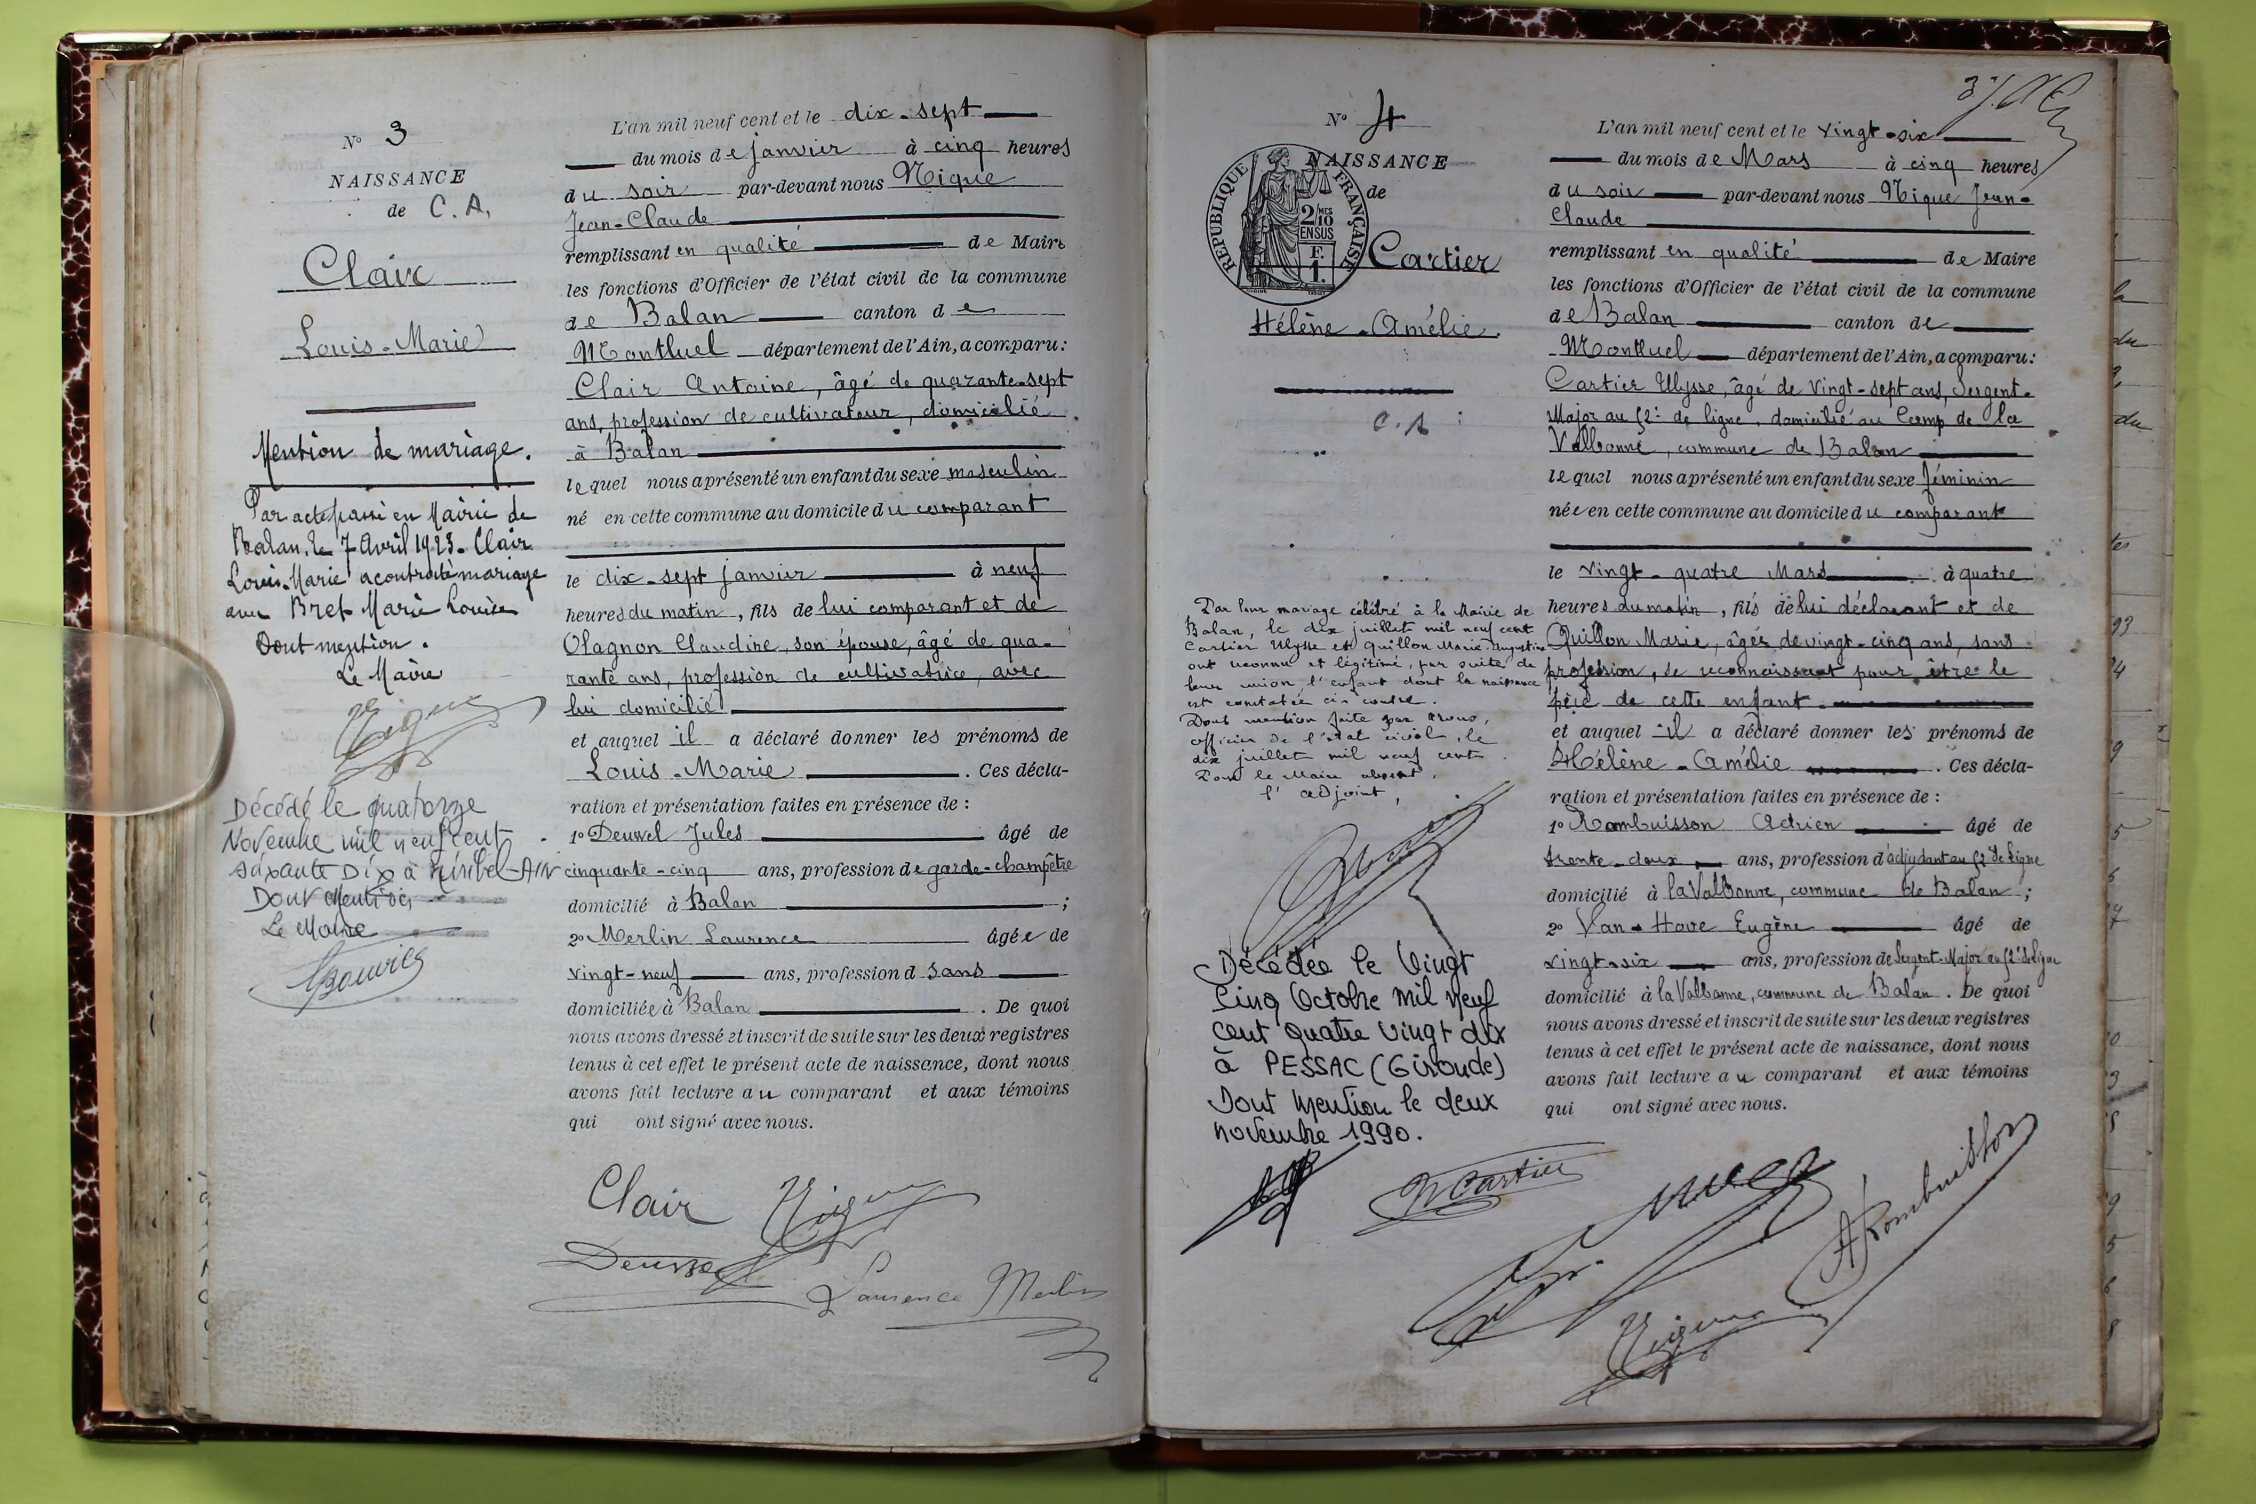 N° 3
NAISSANCE
de C. A.
Clair
Louis-Marie
Mention de mariage.
Par acte passé en Mairie de
Balan, le 7 Avril 1923. Clair
Louis-Marie a contracté mariage
avec Bret Marie Louise
Dont mention.
Le Maire
Nique
Décédé le quatorze
Novembre mil neuf cent
soixante Dix à Miribel-AIN
Dont Mention
Le Maire
L'an mil neuf cent et le dix-sept
du mois de janvier à cinq heures
du soir par-devant nous Nique
Jean-Claude
remplissant en qualité de Maire
les fonctions d'Officier de l'état civil de la commune
de Balan canton de
Montluel département de l'Ain, a comparu:
Clair Antoine, âgé de quarante-sept
ans, profession de cultivateur, domicilié
à Balan
lequel nous a présenté un enfant du sexe masculin
né en cette commune au domicile du comparant
le dix-sept janvier à neuf
heures du matin, fils de lui comparant et de
Olagnon Claudine, son épouse, âgé de qua-
rante ans, profession de cultivatrice, avec
lui domicilié
et auquel il a déclaré donner les prénoms de
Louis-Marie. Ces décla-
ration et présentation faites en présence de :
1° Deuvel Jules âgé de
cinquante-cinq ans, profession de garde-champêtre
domicilié à Balan ;
2° Merlin Laurence âgée de
vingt-neuf ans, profession d sans
domiciliée à Balan. De quoi
nous avons dressé et inscrit de suite sur les deux registres
tenus à cet effet le présent acte de naissance, dont nous
avons fait lecture au comparant et aux témoins
qui ont signé avec nous.
Clair Nique
Laurence Merlin
N° 4
NAISSANCE
de
REPUBLIQUE FRANÇAISE
2/10 MES
EN SUS
F.
1.
Cartier
Hélène-Amélie.
C. A
Par leur mariage célébré à la Mairie de
Balan, le dix juillet mil neuf cent
Cartier Ulysse et Quillon Marie-Augustine
ont reconnu et légitimé, par suite de
leur union l'enfant dont la naissance
est constatée ci-contre.
Dont mention faite par nous,
officier de l'état civil, le
dix juillet mil neuf cent.
Pour le Maire absent,
l'adjoint,
Décédée le Vingt
Cinq Octobre mil neuf
cent quatre vingt dix
à PESSAC (Gironde)
Dont mention le deux
novembre 1990.
L'an mil neuf cent et le vingt-six
du mois de Mars à cinq heures
du soir par-devant nous Nique Jean-
Claude
remplissant en qualité de Maire
les fonctions d'Officier de l'état civil de la commune
de Balan canton de
Montluel département de l'Ain, a comparu:
Cartier Ulysse, âgé de vingt-sept ans, Sergent-
Major au 52e de ligne, domicilié au Camp de la
Valbonne, commune de Balan
lequel nous a présenté un enfant du sexe féminin
née en cette commune au domicile du comparant
le vingt-quatre Mars à quatre
heures du matin, fils de lui déclarant et de
Quillon Marie, âgée de vingt-cinq ans, sans
profession, se reconnaissant pour être le
père de cette enfant.
et auquel il a déclaré donner les prénoms de
Hélène-Amélie. Ces décla-
ration et présentation faites en présence de :
1° Rambuisson Adrien âgé de
trente-deux ans, profession d'adjudant au 52e de ligne
domicilié à la Valbonne, commune de Balan ;
2° Van-Hove Eugène âgé de
vingt-six ans, profession de Sergent-Major au 52e de ligne
domicilié à la Valbonne, commune de Balan. De quoi
nous avons dressé et inscrit de suite sur les deux registres
tenus à cet effet le présent acte de naissance, dont nous
avons fait lecture au comparant et aux témoins
qui ont signé avec nous.
Cartier
Nique